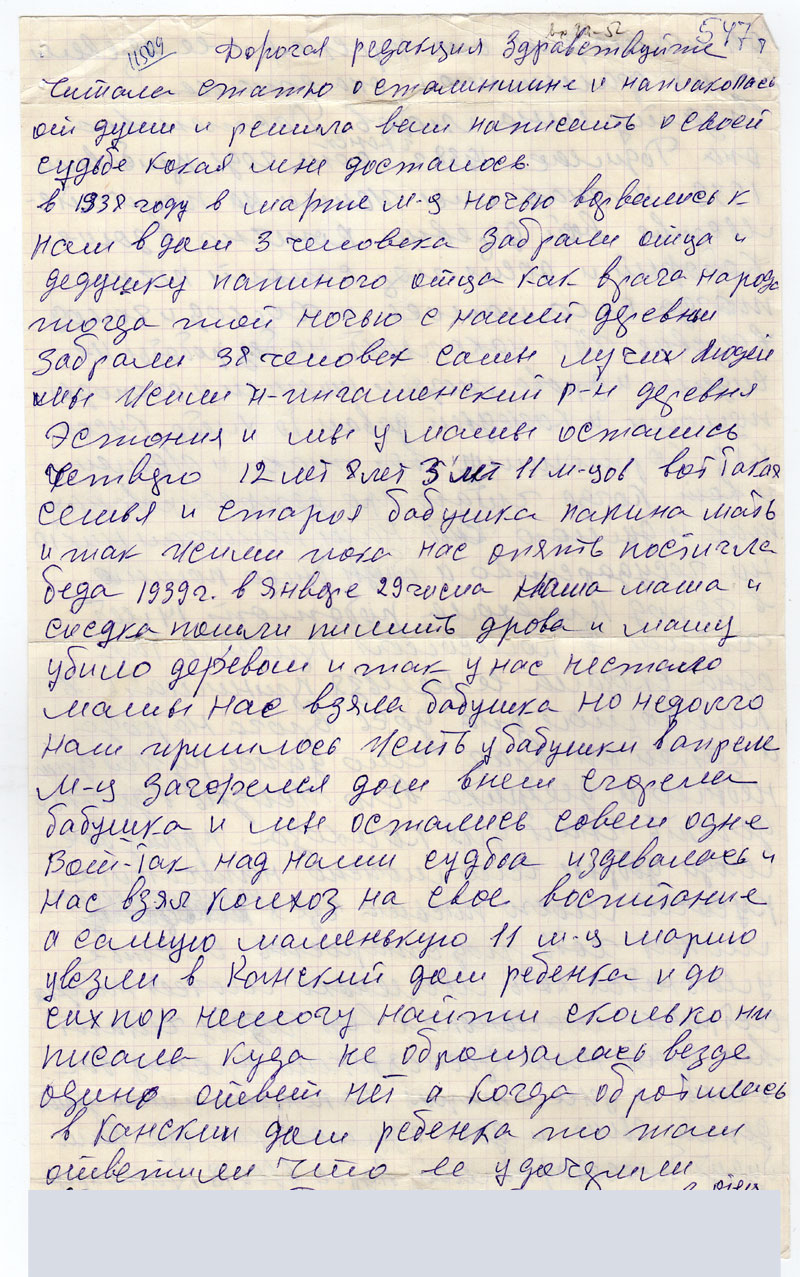 547
11509
Дорогая редакция Здравствуйте
Читала статю о сталинщине и наплаколась
от души и решила вам написать о своей
судьбе кокая мне досталось.
в 1938 году в марте м-ц ночью ворвались к
нам в дом 3 человека Забрали отца и
дедушку папиного отца как врага народа
тогда той ночью с нашей деревни
Забрали 38 человек самы лучих людей
мы Жили Н-ингашенский р-н деревня
Эстония и мы у мамы остались
четверо 12 лет 8 лет 5 лет 11 м-цов вот такая
семья и староя бабушка папина мать
и так Жили пока нас опять постигла
беда 1939 г. в Январе 29 числа Наша мама и
соседка пошли пилить дрова и маму
убило деревом и так у нас нестало
мамы нас взяла бабушка но недолго
нам пришлось Жить у бабушки в апреле
м-ц Загорелся дом внем сгорела
бабушка и мы остались совсем одне
Вот-Так над нами судьба издевалась и
нас взял колхоз на свое воспитание
а самую маленькую 11 м-ц марию
увезли в Канский дом ребенка и до
сих пор немогу найти сколько ни
писала куда не оброщалась везде
один ответ нет а когда обротилась
в Канский дом ребенка то там
ответили что ее удочерили